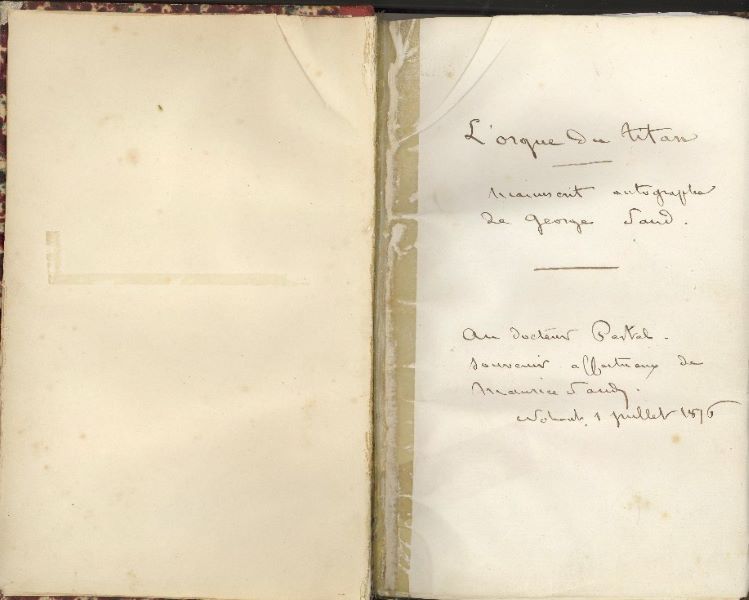 L'orgue du titan
manuscrit autographe
de George Sand.
Au docteur Pestel.
souvenir affectueux de
Maurice Sand.
Nohant, 1 juillet 1876